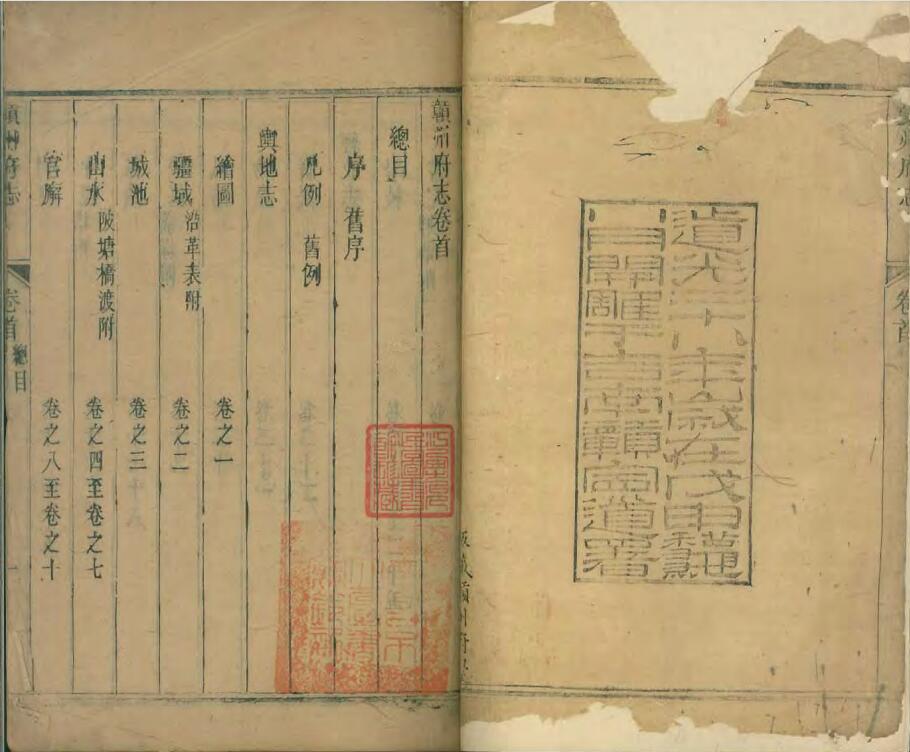 道光二十八年歲在戊申龝
開雕于吉南贛寧道署
贛州府志卷首
總目
序 舊序
凡例 舊例
輿地志
繪圖 卷之一
疆域 沿革表附 卷之二
城池 卷之三
山水 陂塘橋渡附 卷之四至卷之七
官廨 卷之八至卷之十
贛州府志 卷首 總目 一